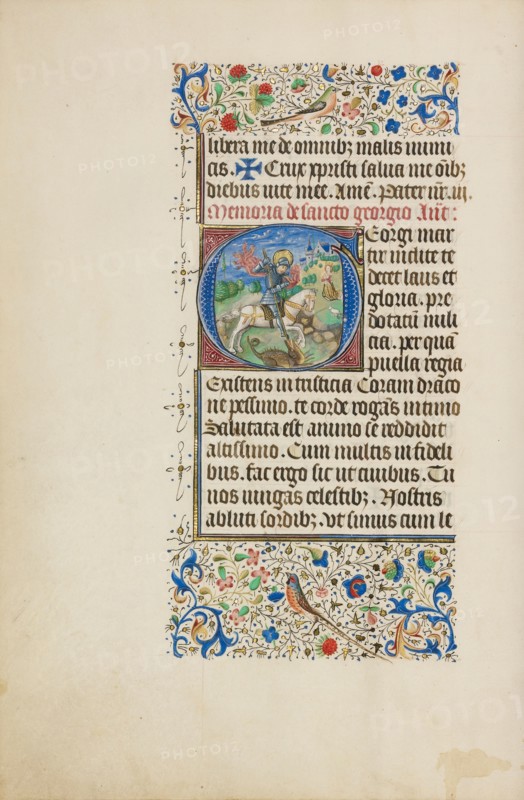 libera me de omnibꝫ malis inimi
cis. ✠ Crux xpristi salua me oibꝫ
diebus uite mee. Amē. Pater nr̄. ui.
Memoria de sancto georgio Ant̄:
Georgi mar
tir inclite te
decet laus et
gloria. pre
dotatū mili
cia. per quā
puella regia
Existens in tristicia Coram draco
ne pessimo. te corde rogās intimo
Saluata est animo se reddidit
altissimo. Cum multis in fideli
bus. fac ergo sic ut ciuibus. Tu
nos iungas celestibꝫ. Nostris
abluti sordibꝫ. vt simus cum le
PHOTO12